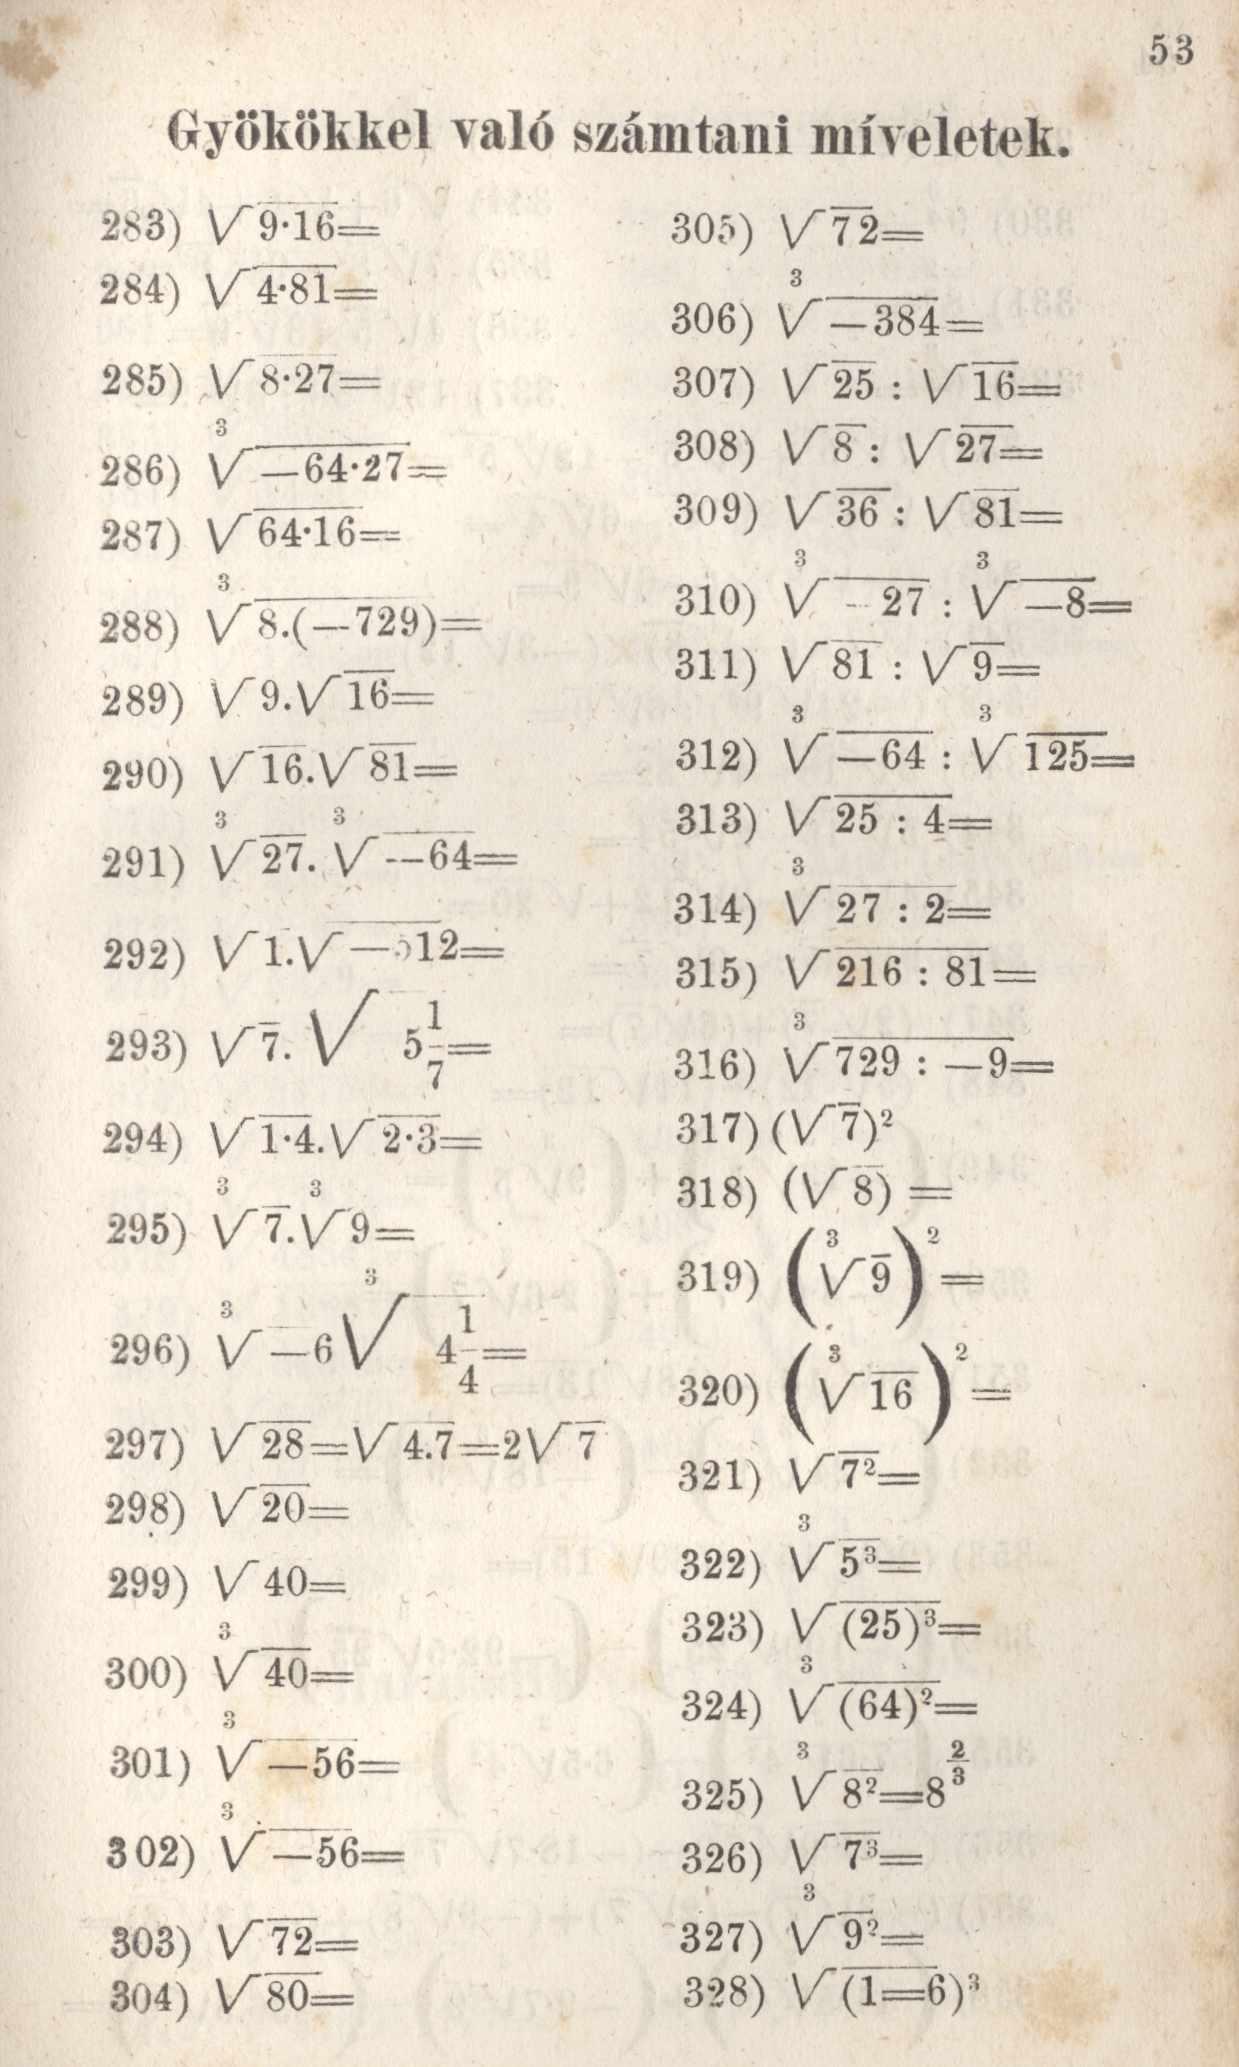 53
Gyökökkel való számtani míveletek.
283) √9·16=
284) √4·81=
285) √8·27=
286) ∛−64·27=
287) √64·16=
288) ∛8.(−729)=
289) √9.√16=
290) √16.√81=
291) ∛27.∛−64=
292) √1.√−512=
293) √7.√5 1/7=
294) √1·4.√2·3=
295) ∛7.∛9=
296) ∛−6∛4 1/4=
297) √28=√4.7=2√7
298) √20=
299) √40=
300) ∛40=
301) ∛−56=
302) ∛−56=
303) √72=
304) √80=
305) √72=
306) ∛−384=
307) √25 : √16=
308) √8 : √27=
309) √36 : √81=
310) ∛−27 : ∛−8=
311) √81 : √9=
312) ∛−64 : ∛125=
313) √25 : 4=
314) ∛27 : 2=
315) √216 : 81=
316) ∛729 : −9=
317) (√7)²
318) (√8) =
319) (∛9)²=
320) (∛16)²=
321) √7²=
322) ∛5³=
323) √(25)³=
324) ∛(64)²=
325) ∛8²=8^2/3
326) √7³=
327) ∛9²=
328) √(1=6)³